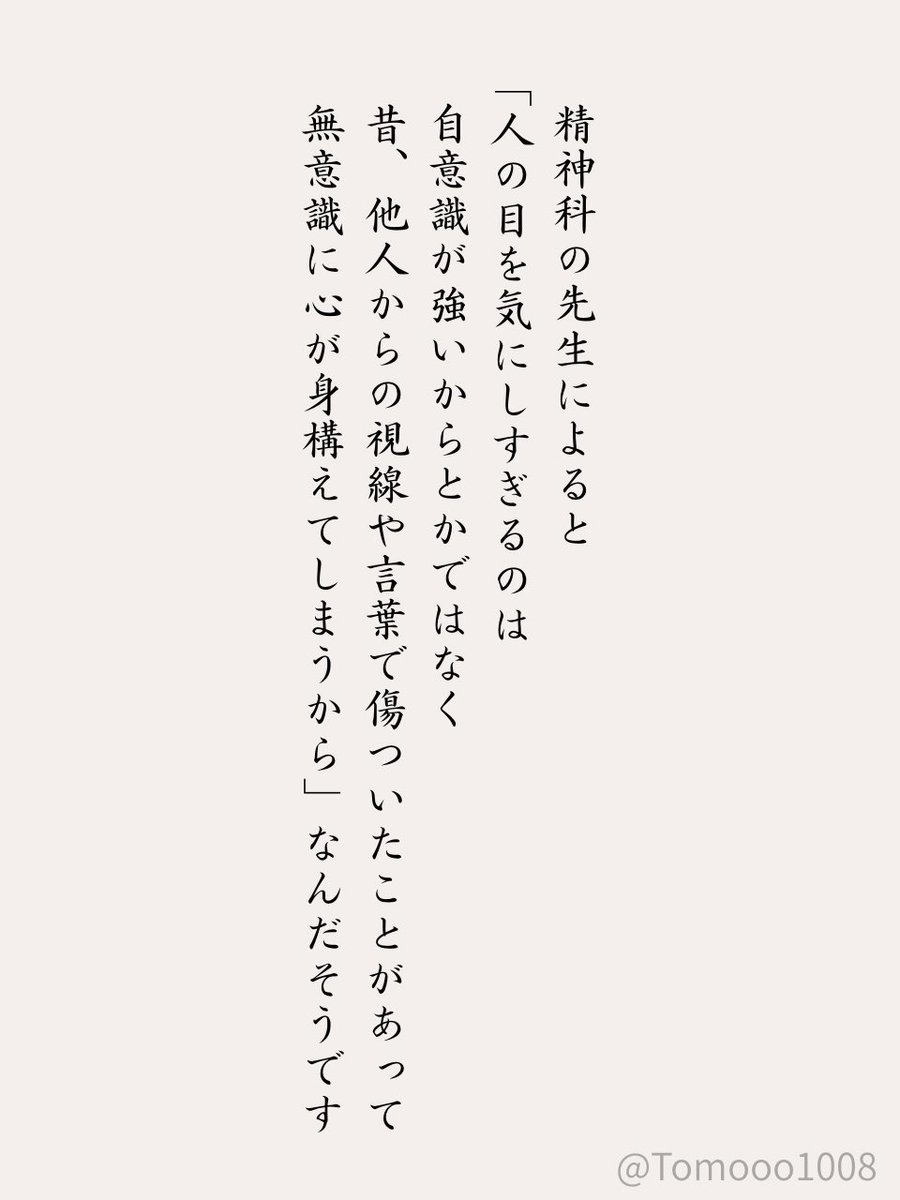 精神科の先生によると
「人の目を気にしすぎるのは
自意識が強いからとかではなく
昔、他人からの視線や言葉で傷ついたことがあって
無意識に心が身構えてしまうから」なんだそうです
@Tomooo1008